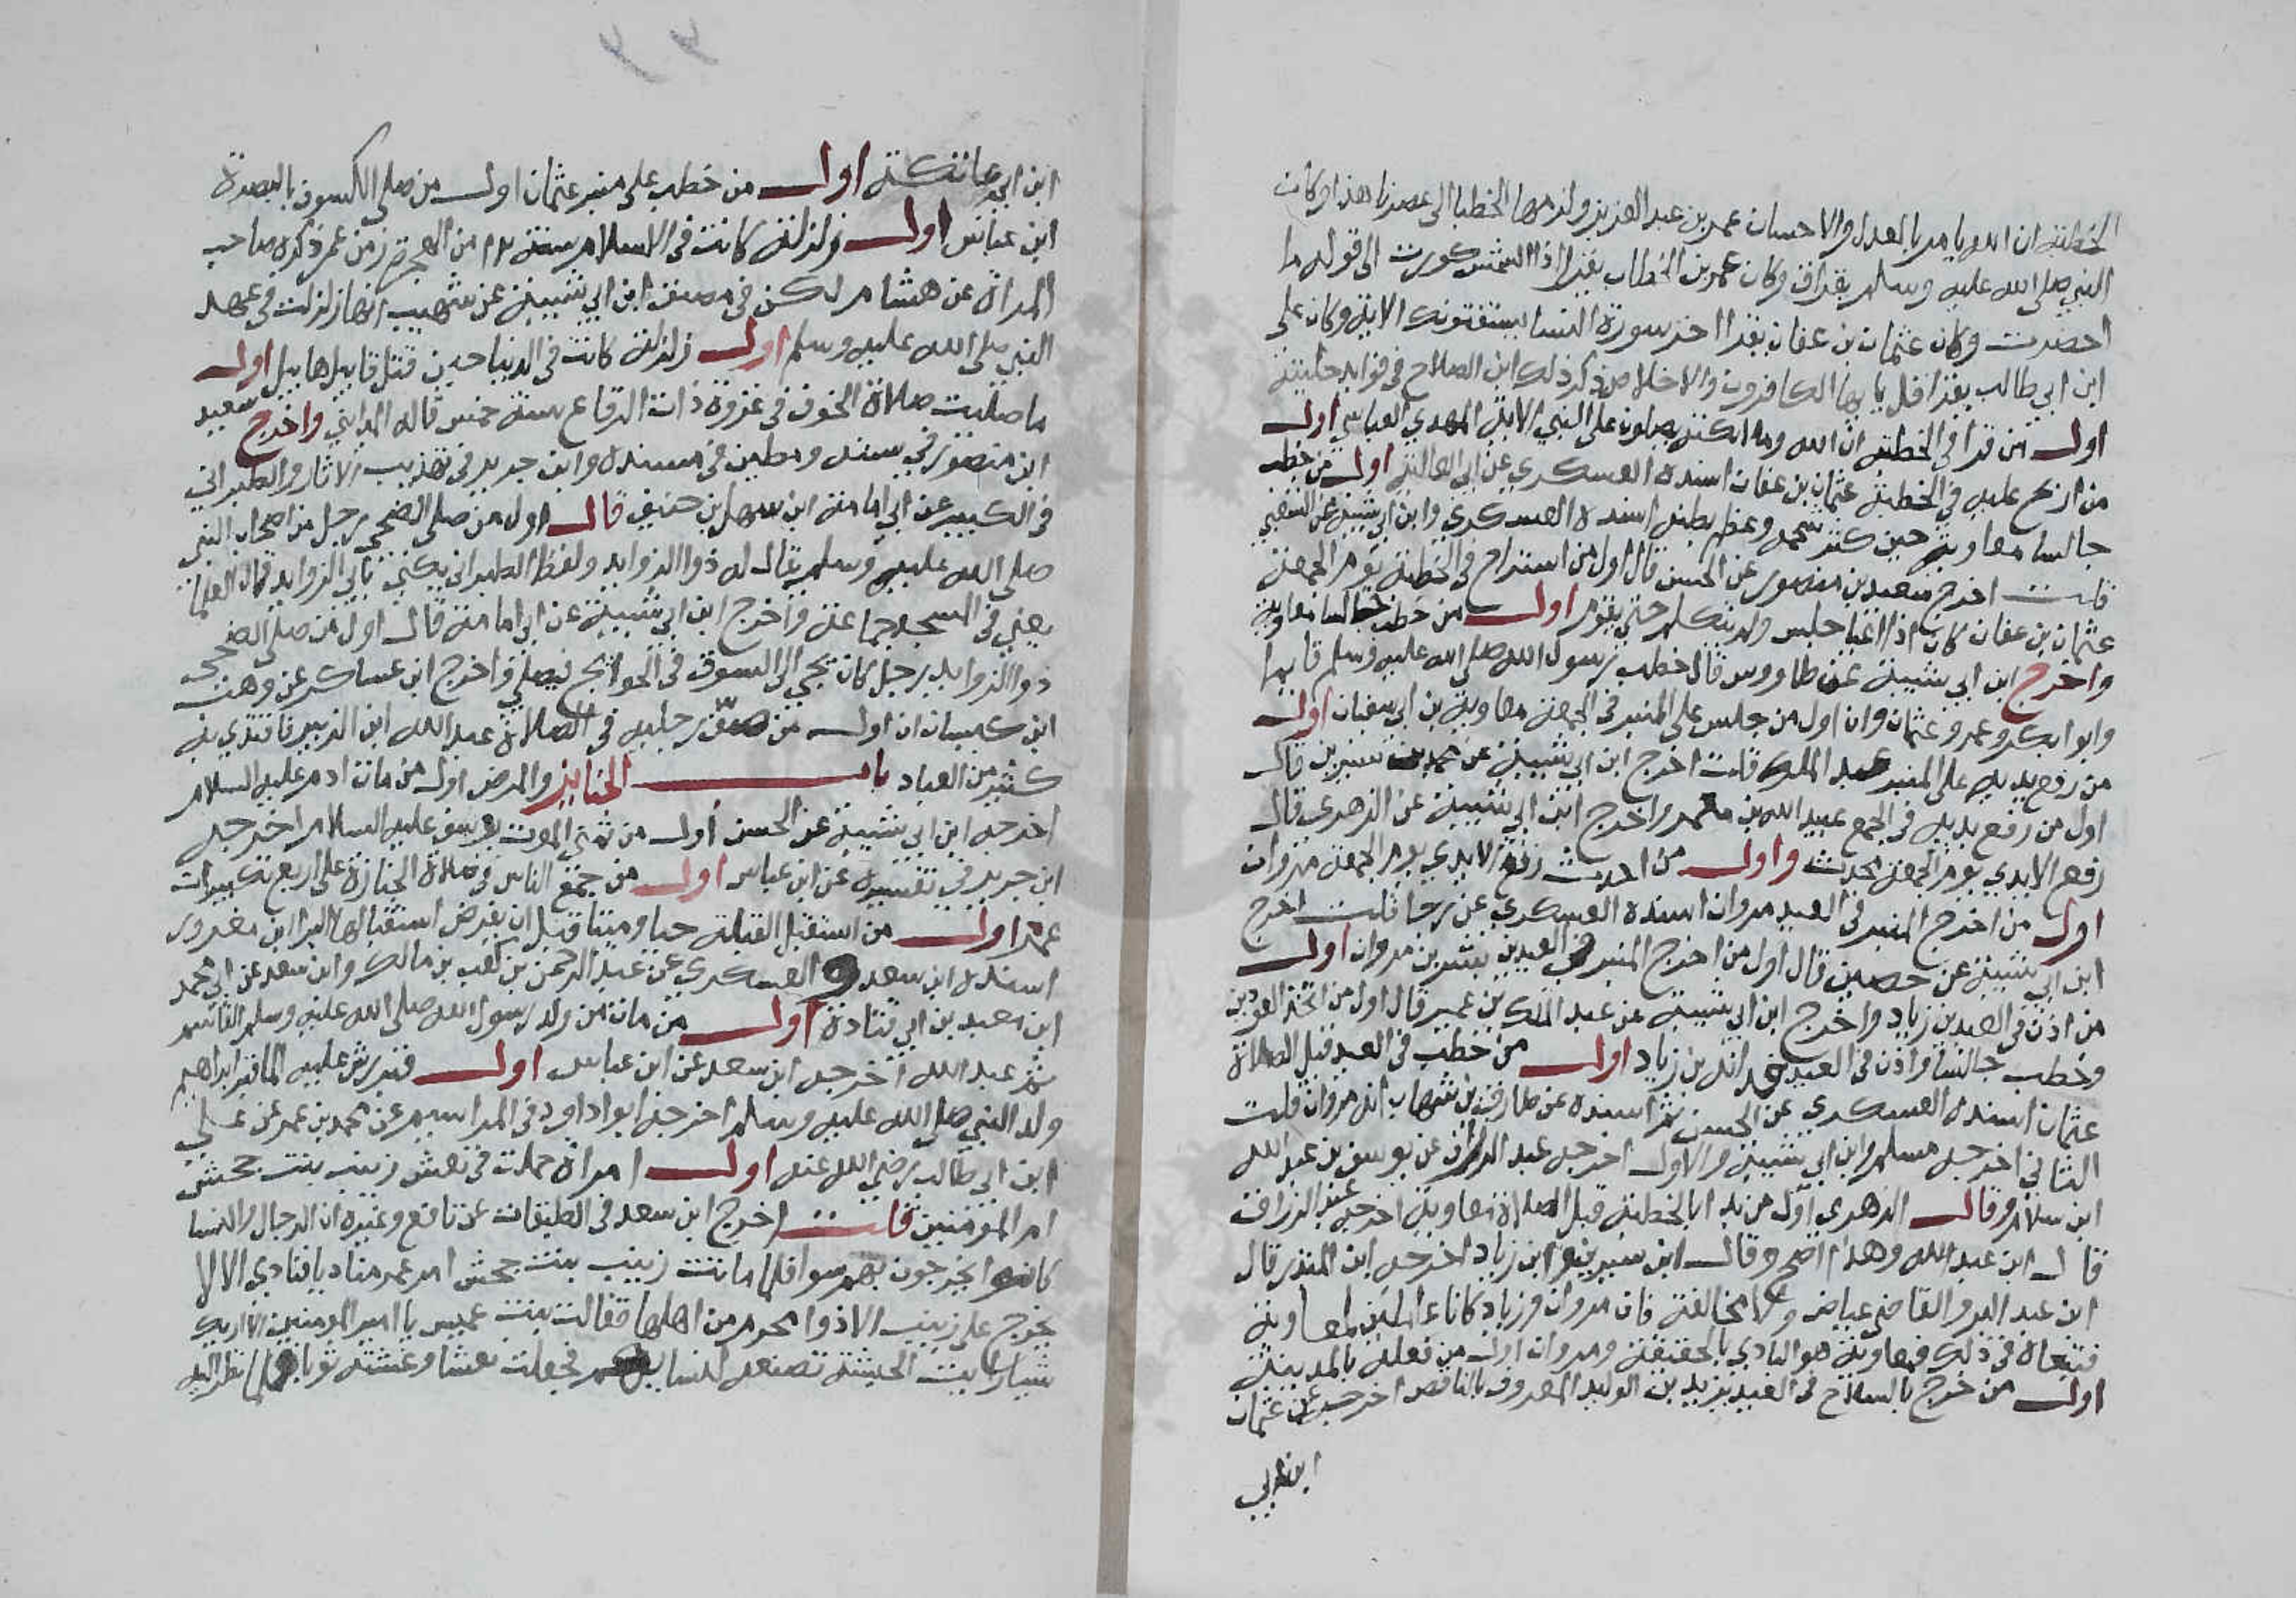 الخطبة ان الله يامر بالعدل والاحسان عمر بن عبد العزيز ولزمها الخطبا الى عصرنا هذا وكان
النبي صلى الله عليه وسلم يقرا ق وكان عمر بن الخطاب يقرا اذا الشمس كورت الى قوله ما
احضرت وكان عثمان بن عفان يقرا اخر سورة النسا يستفتونك الاية وكان على
ابن ابي طالب يقرا قل يا يها الكافرون والاخلاص ذكر ذلك ابن الصلاح في فوايد رحلته
اول من قرا في الخطبة ان الله وملائكته يصلون على النبي الاية المهدي العباسي اول
من ارتج عليه في الخطبة عثمان بن عفان اسنده العسكري عن ابي العالية اول من خطب
جالسا معاوية حين كثر شحمه وعظم بطنه اسنده العسكري وابن ابي شيبة عن الشعبي
قلت اخرج سعيد بن منصور عن الحسن قال اول من استراح في الخطبة يوم الجمعة
عثمان بن عفان كان اذا اعيا جلس ولم يتكلم حتى يقوم اول من خطب جالسا معاوية
واخرج ابن ابي شيبة عن طاووس قال خطب رسول الله صلى الله عليه وسلم قايما
وابو ابكر وعمر وعثمان وان اول من جلس على المنبر في الجمعة معاوية بن ابي سفيان اول
من رفع يديه على المنبر عبد الملك قلت اخرج ابن ابي شيبة عن محمد بن سيرين قال
اول من رفع يديه في الجمع عبيد الله بن معمر واخرج ابن ابي شيبة عن الزهري قال
رفع الايدي يوم الجمعة محدث واول من احدث رفع الايدي يوم الجمعة مروان
اول من اخرج المنبر في العيد مروان اسنده العسكري عن رجا قلت اخرج
ابن ابي شيبة عن حصين قال اول من اخرج المنبر في العيدين بشر بن مروان اول
من اذن في العيد بن زياد واخرج ابن ابي شيبة عن عبد الملك بن عمير قال اول من اتخذ العودين
وخطب جالسا واذن في العيدين قدامه ابن زياد اول من خطب في العيد قبل الصلاة
عثمان اسنده العسكري عن الحسن ثم اسنده عن طارق بن شهاب انه مروان قلت
الثاني اخرجه مسلم وابن ابي شيبة والاول اخرجه عبد الرزاق عن يوسف بن عبد الله
ابن سلام وقال الزهري اول من بدا بالخطبة قبل الصلاة معاوية اخرجه عبد الرزاق
قال ابن عبد الله وهذا اصح وقال ابن سيرين ابن زياد اخرجه ابن المنذر قال
ابن عبد البر والقاضي عياض ولا مخالفة فان مروان وزياد كانا عاملين لمعاوية
فتبعاه في ذلك فمعاوية هو البادي بالحقيقة ومروان اول من فعله بالمدينة
اول من خرج بالسلاح في العيد يزيد بن الوليد المعروف بالناقص اخرجه عن عثمان
ابن ابي
ابن ابي عاتكة اول من خطب على منبر عثمان اول من صلى الكسوف بالبصرة
ابن عباس اول زلزلة كانت في الاسلام سنة من الهجرة زمن عمر ذكره صاحب
المراة عن هشام لكن في مصنف ابن ابي شيبة عن شهيب انها زلزلت في عهد
النبي صلى الله عليه وسلم اول زلزلة كانت في الدنيا حين قتل قابيل هابيل اول
ما صليت صلاة الخوف في غزوة ذات الرقاع سنة خمس قاله المدايني واخرج سعيد
ابن منصور في سننه ومطين في مسنده وابن جرير في تهذيب الاثار والطبراني
في الكبير عن ابي امامة ابن سهل بن حنيف قال اول من صلى الضحى رجل من اصحاب النبي
صلى الله عليه وسلم يقال له ذوا الزوايد ولفظ الطبراني يكنى بابي الزوايد قال العلما
يعني في المسجد جماعة واخرج ابن ابي شيبة عن ابي امامة قال اول من صلى الضحى
ذوا الزوايد رجل كان يجي الى السوق في الحوايج فيصلي واخرج ابن عساكر عن وهب
ابن كيسان ان اول من صف رجليه في الصلاة عبد الله ابن الزبير فاقتدي به
كثير من العباد باب الجنايز والمرض اول من مات ادم عليه السلام
اخرجه ابن ابي شيبة عن الحسن اول من تمنى الموت يوسف عليه السلام اخرجه
ابن جرير في تفسيره عن ابن عباس اول من جمع الناس في صلاة الجنازة على اربع تكبيرات
عمر اول من استقبل القبلة حيا وميتا قبل ان يفرض استقبالها البرا ابن معرور
اسنده ابن سعد و العسكري عن عبد الرحمن بن كعب بن مالك وابن سعد عن ابي محمد
ابن معبد بن ابي قتادة اول من مات من ولد رسول الله صلى الله عليه وسلم القاسم
ثم عبد الله اخرجه ابن سعد عن ابن عباس اول قبر رش عليه الما قبر ابراهيم
ولد النبي صلى الله عليه وسلم اخرجه ابو اداود في المراسيم عن محمد بن عمر عن علي
ابن ابي طالب رضي الله عنه اول امراة حملت في نعش زينب بنت جحش
ام المومنين قلت اخرج ابن سعد في الطبقات عن نافع وغيره ان الرجال والنسا
كانوا يخرجون بهم سوا فلما ماتت زينب بنت جحش امر عمر مناديا فنادي الا لا
يخرج على زينب الا ذوا محرم من اهلها فقالت بنت عميس يا امير المومنين الا اريك
شيا رايت الحبشة تصنعه لنسايهم فجعلت نعشا وغشته ثوبا فلما نظر اليه